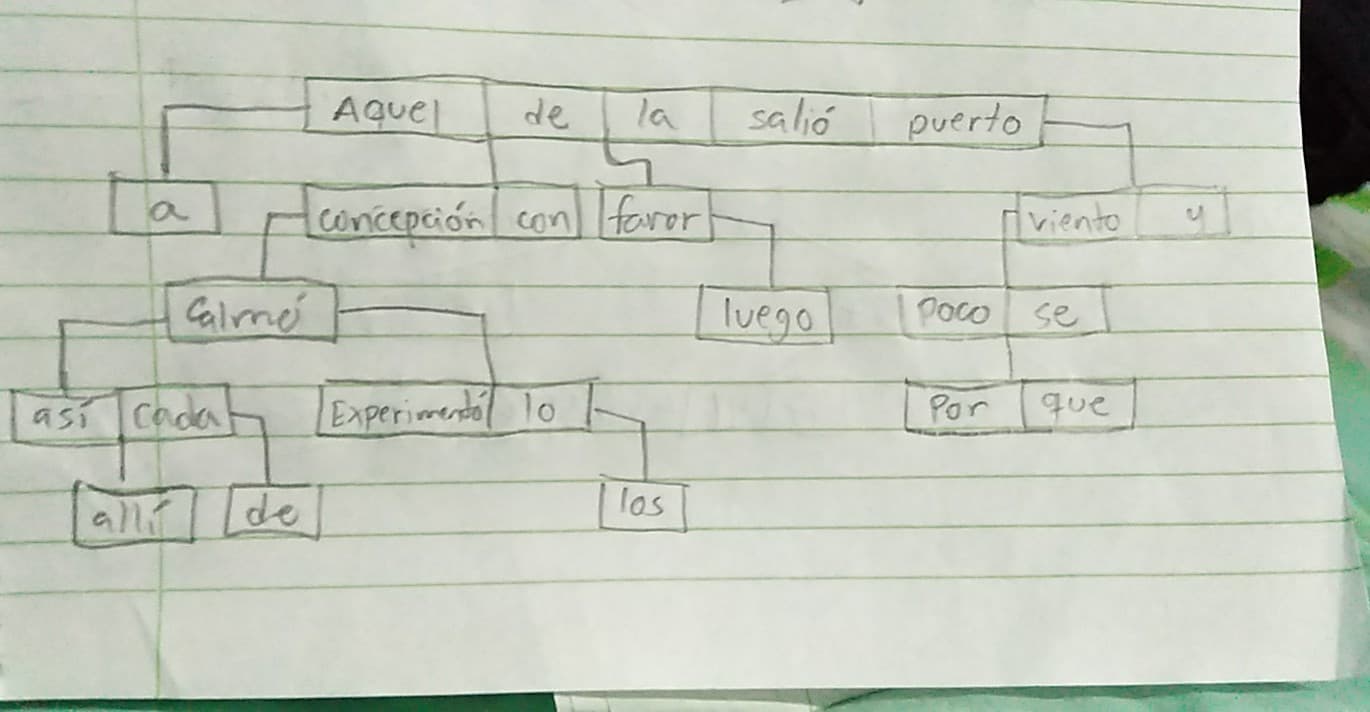 Aquel de la salió puerto
a concepción con favor viento y
Calmó luego poco se
así cada Experimentó lo Por que
allí de los